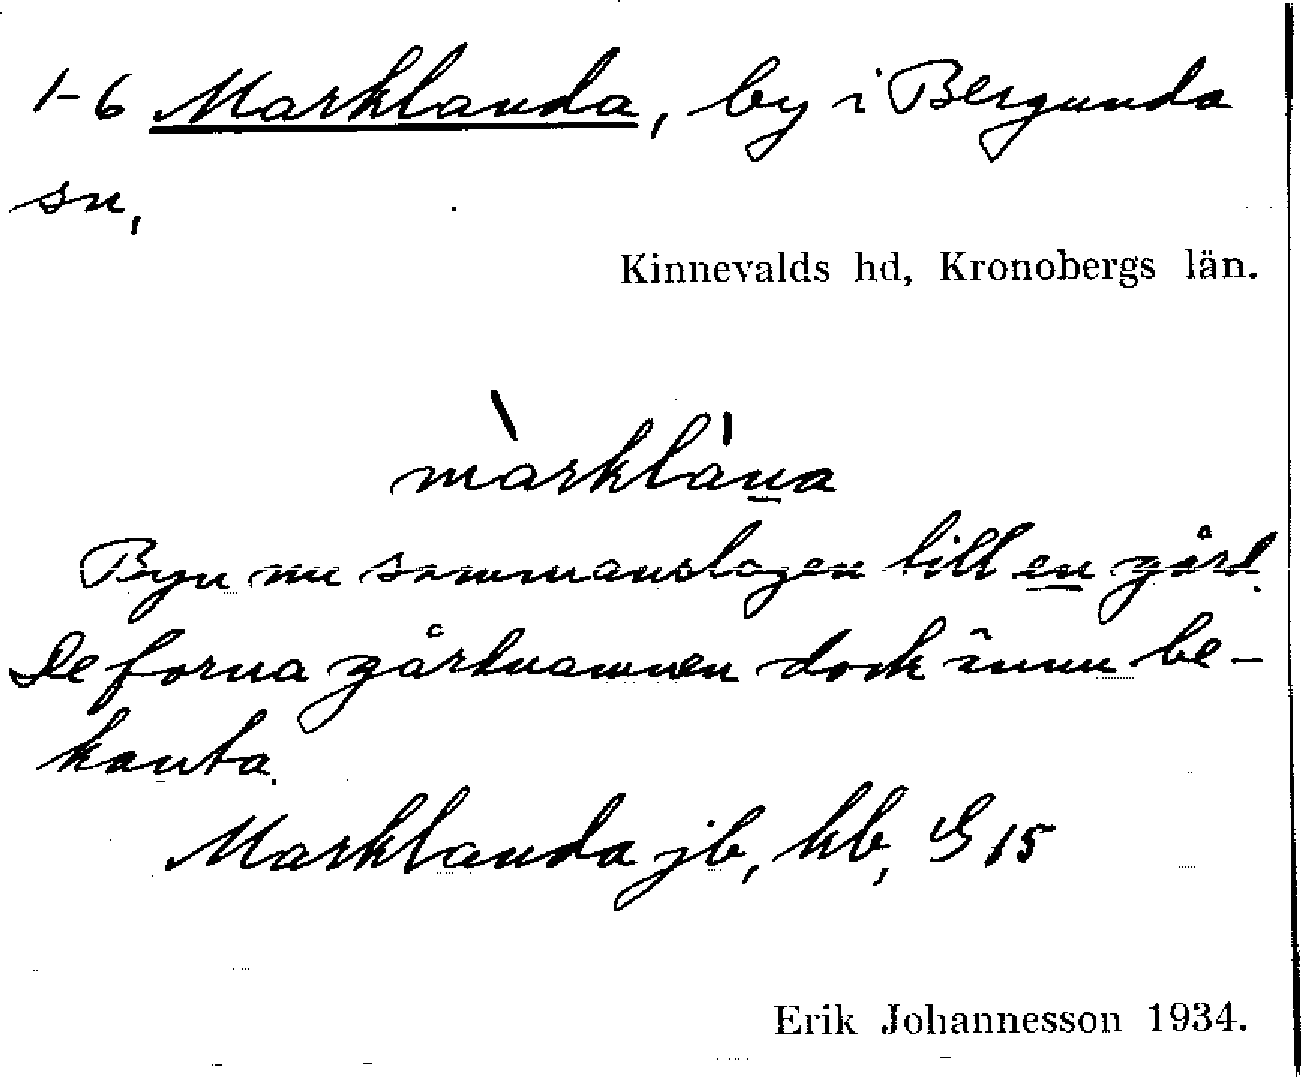 1-6 Marklanda, by i Bergunda
sn,
Kinnevalds hd, Kronobergs län.
màrklána
Byn nu sammanslagen till en gård.
De forna gårdnamnen dock ännu be-
kanta.
Marklanda jb, hb, G 15
Erik Johannesson 1934.